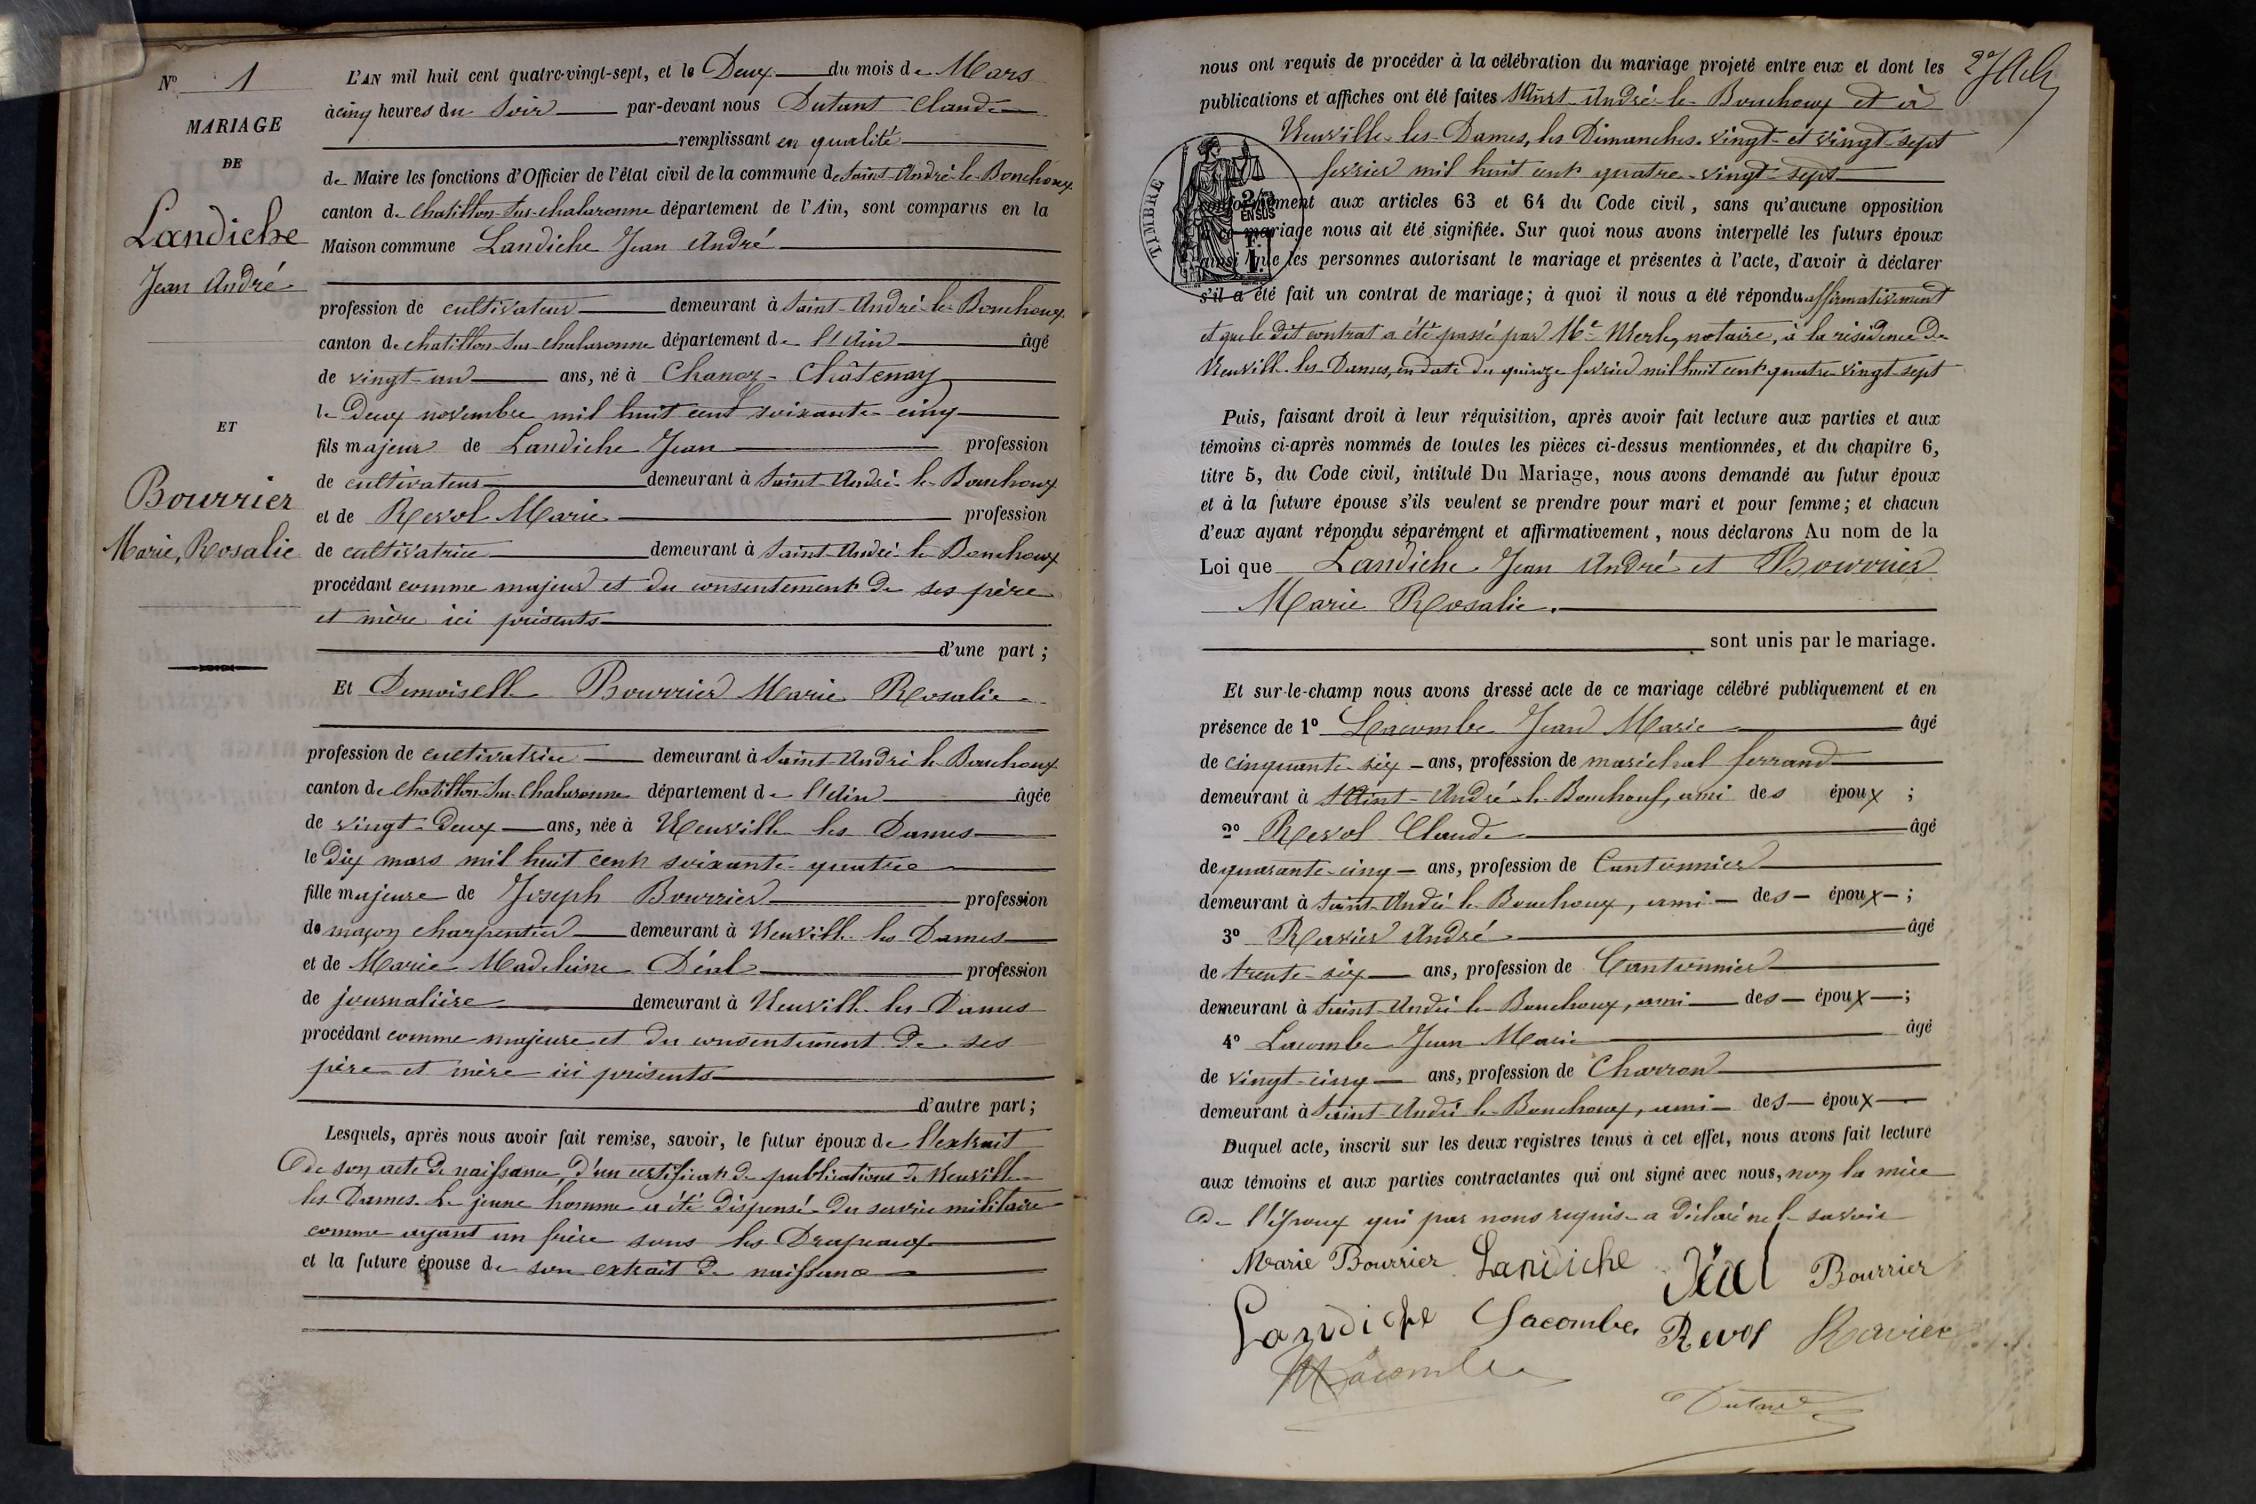 N° 1
MARIAGE
DE
Landiche
Jean André
ET
Bourrier
Marie, Rosalie
L'AN mil huit cent quatre-vingt-sept, et le Deux du mois de Mars
à cinq heures du Soir par-devant nous Dutant Claude
remplissant en qualité
de Maire les fonctions d'Officier de l'état civil de la commune de Saint-André-le-Bouchoux
canton de Chatillon-sur-chalaronne département de l'Ain, sont comparus en la
Maison commune Landiche Jean André
profession de cultivateur demeurant à Saint-André-le-Bouchoux
canton de chatillon-sur-chalaronne département de l'Ain âgé
de vingt-un ans, né à Chanoz-Châtenay
le deux novembre mil huit cent soixante-cinq
fils majeur de Landiche Jean profession
de cultivateur demeurant à Saint-André-le-Bouchoux
et de Revol Marie profession
de cultivatrice demeurant à Saint-André-le-Bouchoux
procédant comme majeur et du consentement de ses père
et mère ici présents
d'une part ;
Et Demoiselle Bourrier Marie Rosalie
profession de cultivatrice demeurant à Saint-André-le-Bouchoux
canton de Chatillon-sur-Chalaronne département de l'Ain âgée
de vingt-deux ans, née à Neuville les Dames
le Dix mars mil huit cent soixante-quatre
fille majeure de Joseph Bourrier profession
de maçon charpentier demeurant à Neuville les Dames
et de Marie Madeleine Déal profession
de journalière demeurant à Neuville-les-Dames
procédant comme majeure et du consentement de ses
père et mère ici présents
d'autre part ;
Lesquels, après nous avoir fait remise, savoir, le futur époux de l'extrait
de son acte de naissance, d'un certificat de publications de Neuville
les Dames. Le jeune homme a été dispensé du service militaire
comme ayant un frère sous les Drapeaux
et la future épouse de son extrait de naissance
nous ont requis de procéder à la célébration du mariage projeté entre eux et dont les
publications et affiches ont été faites à Saint-André-le-Bouchoux et à
Neuville-les-Dames, les Dimanches vingt et vingt-sept
fevrier mil huit cent quatre-vingt-sept
TIMBRE
2/10 EN SUS
conformément aux articles 63 et 64 du Code civil, sans qu'aucune opposition
mariage nous ait été signifiée. Sur quoi nous avons interpellé les futurs époux
ainsi que les personnes autorisant le mariage et présentes à l'acte, d'avoir à déclarer
s'il a été fait un contrat de mariage; à quoi il nous a été répondu affirmativement
et que le dit contrat a été passé par Me Merle, notaire, à la résidence de
Neuville-les-Dames, en date du quinze fevrier mil huit cent quatre vingt-sept
Puis, faisant droit à leur réquisition, après avoir fait lecture aux parties et aux
témoins ci-après nommés de toutes les pièces ci-dessus mentionnées, et du chapitre 6,
titre 5, du Code civil, intitulé Du Mariage, nous avons demandé au futur époux
et à la future épouse s'ils veulent se prendre pour mari et pour femme; et chacun
d'eux ayant répondu séparément et affirmativement, nous déclarons Au nom de la
Loi que Landiche Jean André et Bourrier
Marie Rosalie.
sont unis par le mariage.
Et sur-le-champ nous avons dressé acte de ce mariage célébré publiquement et en
présence de 1° Lacombe Jean Marie âgé
de cinquante-six ans, profession de maréchal ferrand
demeurant à Saint-André-le-Bouchoux, ami des époux ;
2° Revol Claude âgé
de quarante-cinq ans, profession de Cantonnier
demeurant à Saint-André-le-Bouchoux, ami des époux ;
3° Ravier André âgé
de trente-six ans, profession de Cantonnier
demeurant à Saint-André-le-Bouchoux, ami des époux ;
4° Lacombe Jean Marie âgé
de vingt-cinq ans, profession de Charron
demeurant à Saint-André-le-Bouchoux, ami des époux
Duquel acte, inscrit sur les deux registres tenus à cet effet, nous avons fait lecture
aux témoins et aux parties contractantes qui ont signé avec nous, non la mère
de l'époux qui par nous requise a déclaré ne le savoir
Marie Bourrier Landiche Déal Bourrier
Landiche Lacombe Revol Ravier
Lacombe
Dutant